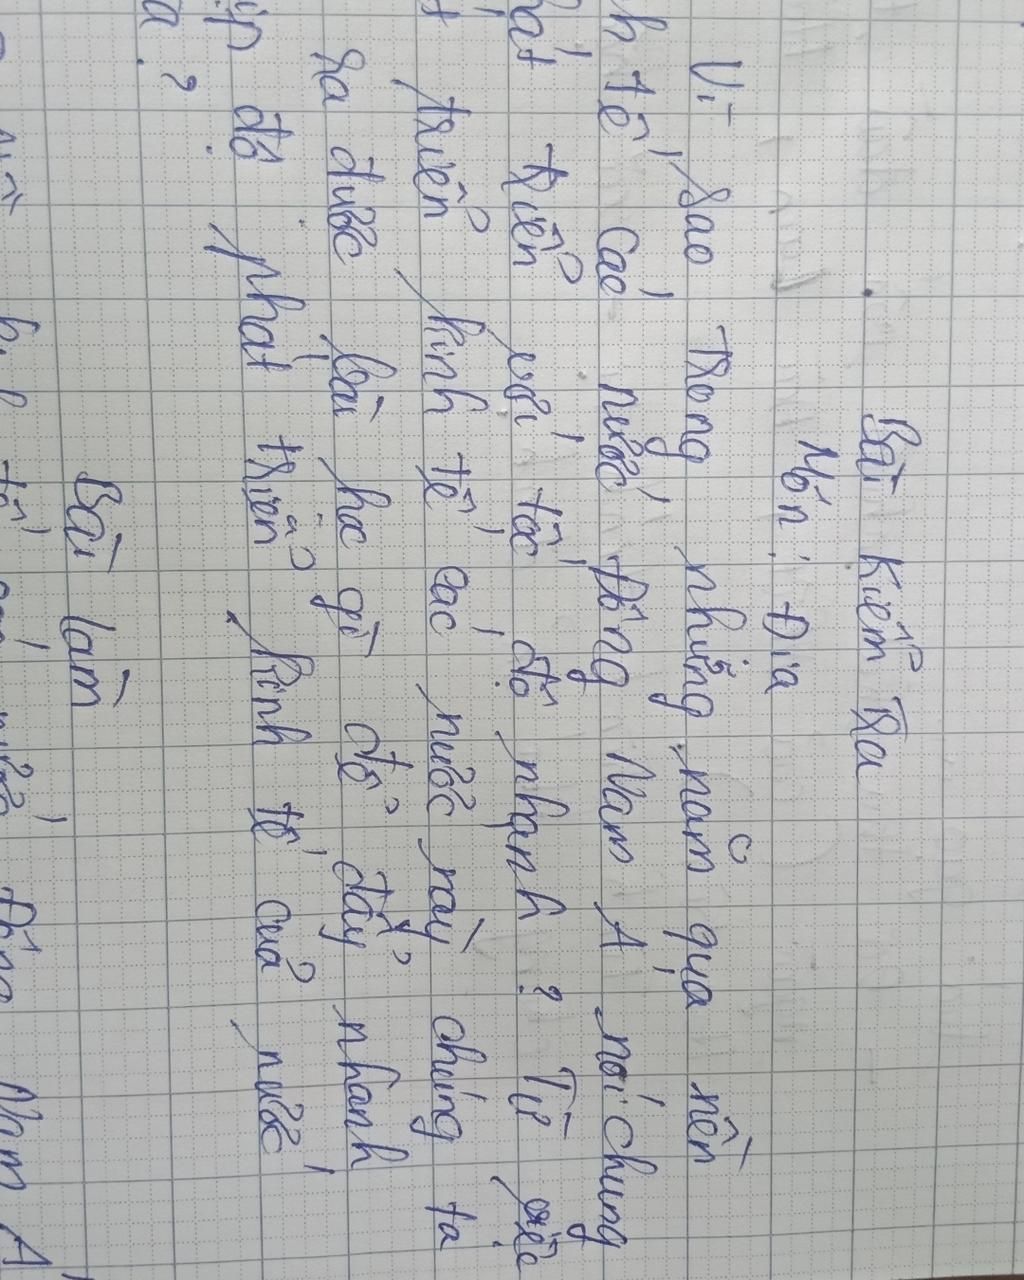 Bài Kiểm Tra
Môn: Địa
Vì sao Trong những năm qua nền
tế các nước Đông Nam Á nói chung
phát triển với tốc độ nhanh? Từ việc
triển kinh tế các nước này chúng ta
ra được bài học gì để đẩy nhanh
độ phát triển kinh tế của nước
ta?
Bài làm
kinh tế các nước Đông Nam Á